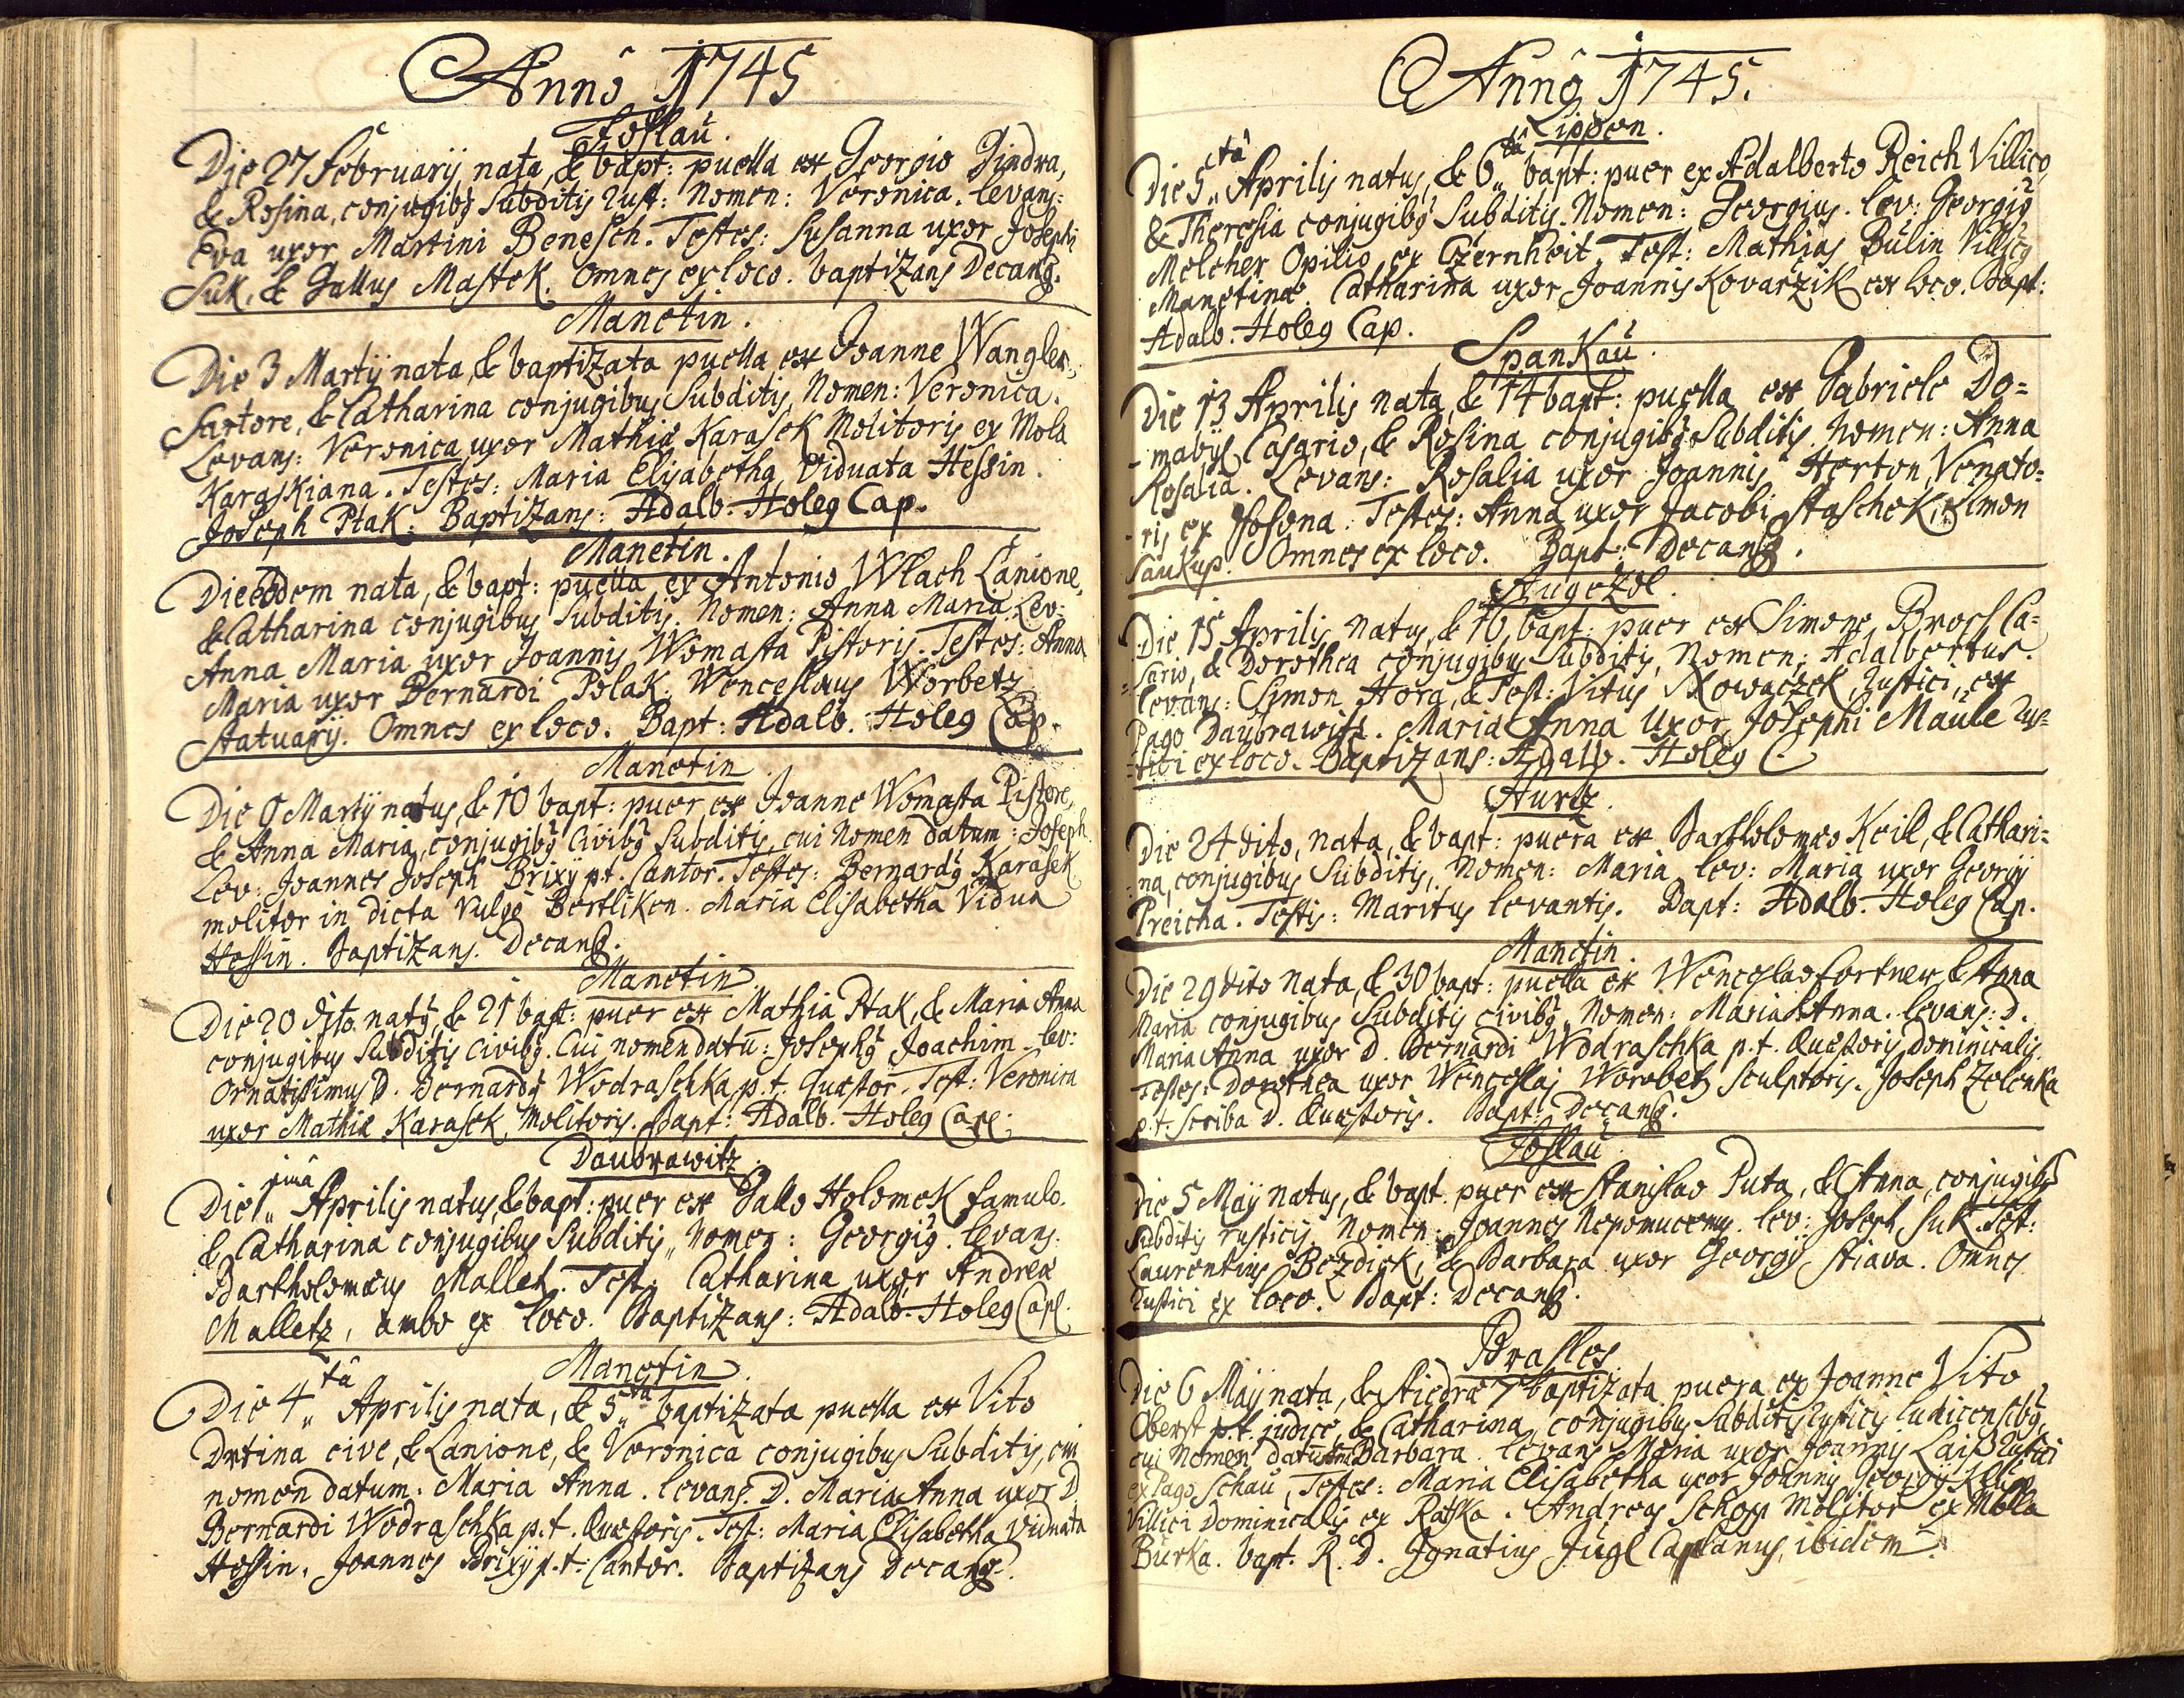 Annô 1745
Joslaŭ.
Die 27 februarij nata, & bapt: puella ex Georgio Jindra,
& Rosina, conjugibꝯ Subditis Rust: Nomen: Veronica. levans:
Eva uxor Martini Benesch. Testes: Susanna uxor Josephi
Suk, & Gallus Mastek. Omnes ex loco. baptizans Decanꝯ.
Manetin.
Die 3 Martij nata, & baptizata puella ex Joanne Wangler,
Sartore, & Catharina conjugibus Subditis, Nomen: Veronica.
Levans: Veronica uxor Mathiæ Karasek Molitoris ex Mola
Karaskiana. Testes: Maria Elisabetha Viduata Hessin.
Joseph Ptak. Baptizans: Adalb. Holeg Cap.
Manetin.
Die eodem nata, & bapt: puella ex Antonio Wlach Lanione,
& Catharina conjugibus Subditis. Nomen: Anna Maria. Lev:
Anna Maria uxor Joannis Womasta Pistoris. Testes: Anna
Maria uxor Bernardi Polak. Wenceslaus Worbetz
Statuarij. Omnes ex loco. Bapt: Adalb. Holeg Cap.
Manetin
Die 9 Martij natus, & 10 bapt: puer ex Joanne Womasta Pistore,
& Anna Maria, conjugibꝯ Civibꝯ Subditis, cui Nomen datum: Joseph
Lev: Joannes Joseph Brixy p.t. Cantor. Testes: Bernardꝯ Karasek
molitor in dicta vulgo Bertliken. Maria Elisabetha Vidua
Hessin. Baptizans. Decanꝯ.
Manetin
Die 20 dito natꝯ, & 21 bapt: puer ex Mathia Ptak, & Maria Anna
conjugibus Subditis Civibꝯ. Cui nomen datū: Josephꝯ Joachim. lev:
Ornatissimus D. Bernardꝯ Wodraschka p.t. Quæstor. Test: Veronica
uxor Mathiæ Karasek, Molitoris. Bapt: Adalb. Holeg Capl:
Daubrawitz.
Die 1mâ Aprilis natus, & bapt: puer ex Gallo Holomek famulo.
& Catharina conjugibus Subditis, Nomen: Georgiꝯ. levans:
Bartholomæus Malletz. Test: Catharina uxor Andreæ
Malletz, ambo ex loco. Baptizans: Adalb. Holeg Capl.
Manetin.
Die 4tâ Aprilis nata, & 5tâ baptizata puella ex Vito
Drtina cive, & Lanione, & Veronica conjugibus Subditis, cui
nomen datum: Maria Anna. levans. D. Maria Anna uxor D
Bernardi Wodraschka p.t. Quæstoris. Test: Maria Elisabetha Viduata
Hessin. Joannes Brixy p.t. Cantor. Baptizans Decanꝯ.
Annô 1745.
Lippen.
Die 5tâ Aprilis natus, & 6tâ bapt: puer ex Adalberto Reich Villico,
& Theresia conjugibꝯ Subditis. Nomen: Georgius. lev: Georgiꝯ
Melcher Opilio ex Czernheit. Test: Mathias Bulin Villicꝯ
Manetinæ. Catharina uxor Joannis Kovarzik ex loco. Bapt:
Adalb. Holeg Cap.
Spankaŭ.
Die 13 Aprilis nata, & 14 bapt: puella ex Gabriele Do=
-mabÿl Casario, & Rosina conjugibꝯ Subditis. Nomen: Anna
Rosalia. Levans: Rosalia uxor Joannis Herton Venato=
-ris ex Testes: Anna uxor Jacobi Staschek, Simon
Saukup. Omnes ex loco. Bapt: Decanꝯ.
Augezdl.
Die 15 Aprilis natus, & 16 bapt: puer ex Simone Broch Ca=
=sario, & Dorothea conjugibus Subditis, Nomen: Adalbertus.
levans: Simon Hora, & Test: Vitus Nowaczek Rustici, ex
Pago Daubrawitz. Maria Anna Uxor Josephi Maule Rus=
=tici ex loco. Baptizans: Adalb. Holeg C.
Hurtz.
Die 24 dito, nata, & bapt: puera ex Bartholomæo Keill, & Cathari=
=na, conjugibus Subditis, Nomen: Maria lev: Maria uxor Georgij
Preicha. Testis: Maritus levantis. Bapt: Adalb. Holeg Cap.
Manetin.
Die 29 dito nata, & 30 bapt: puella ex Wenceslao fortner & Anna
Maria conjugibus Subditis civibꝯ. Nomen: Maria Anna. levans: D.
Maria Anna uxor D. Bernardi Wodraschka p.t. Quæstoris Dominicalis.
Testes: Dorothea uxor Wenceslaj Worobetz Sculptoris. Joseph Zelenka
p.t. scriba D. Quæstoris. Bapt: Decanꝯ.
Joslaŭ
Die 5 Maÿ natus, & bapt. puer ex Stanislao Puta, & Anna, conjugibꝯ
Subditis rusticis. Nomen: Joannes Nepomucenus. lev: Joseph Suk. Test:
Laurentius Bezdiek, & Barbara uxor Georgij Stiava. Omnes
Rustici ex loco. Bapt: Decanꝯ.
Brasles
Die 6 Maÿ nata, & Stiedræ 7 baptizata puera ex Joanne Vito
Oberst p.t. judice, & Catharina conjugibus Subditis Rusticis ludicensibꝯ,
cui Nomen datum Barbara. levans Maria uxor Joannis Laiß Rustici
ex Pago Schau, Testes: Maria Elisabetha uxor Joannis Georgij
Villici Dominicalis ex Ratka. Andreas Schopp Molitor ex Mola
Burka. bapt. R. D. Ignatius Jugl Caplanus ibidem.